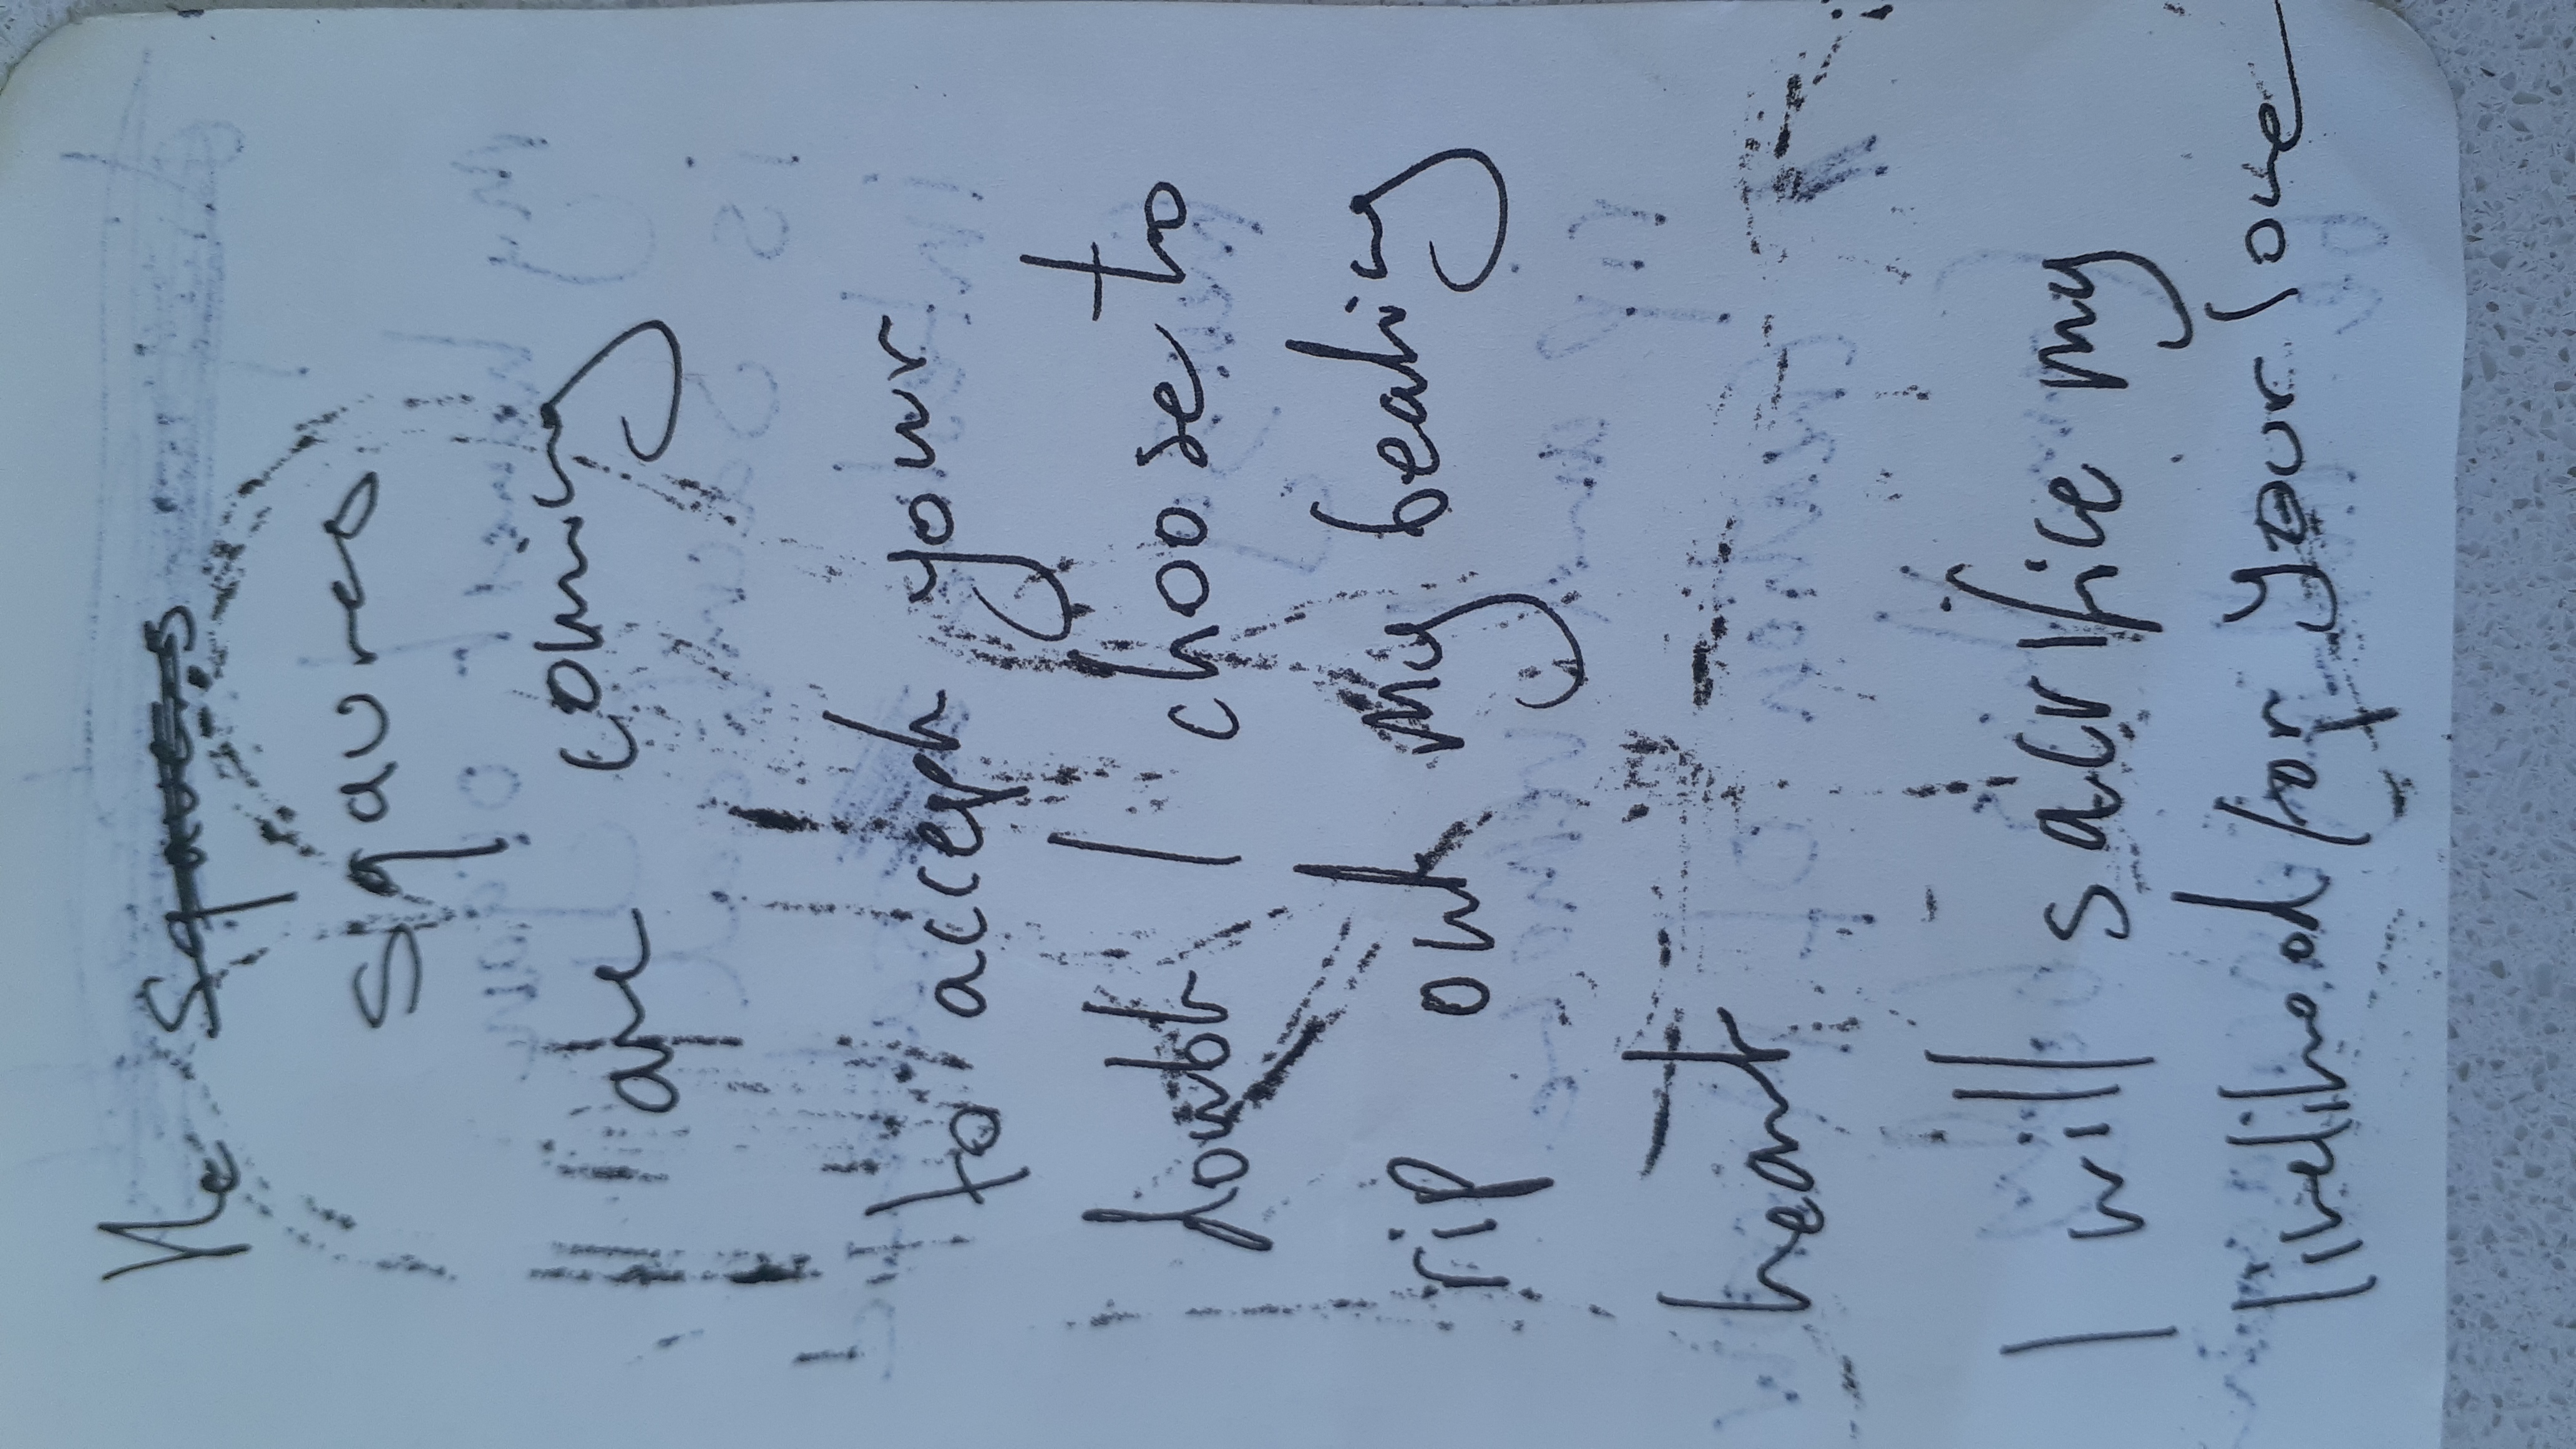 The squares
sqaures
are coming
to accept your
doubt I choose to
rip out my beating
heart
I will sacrifice my
livelihood for your love